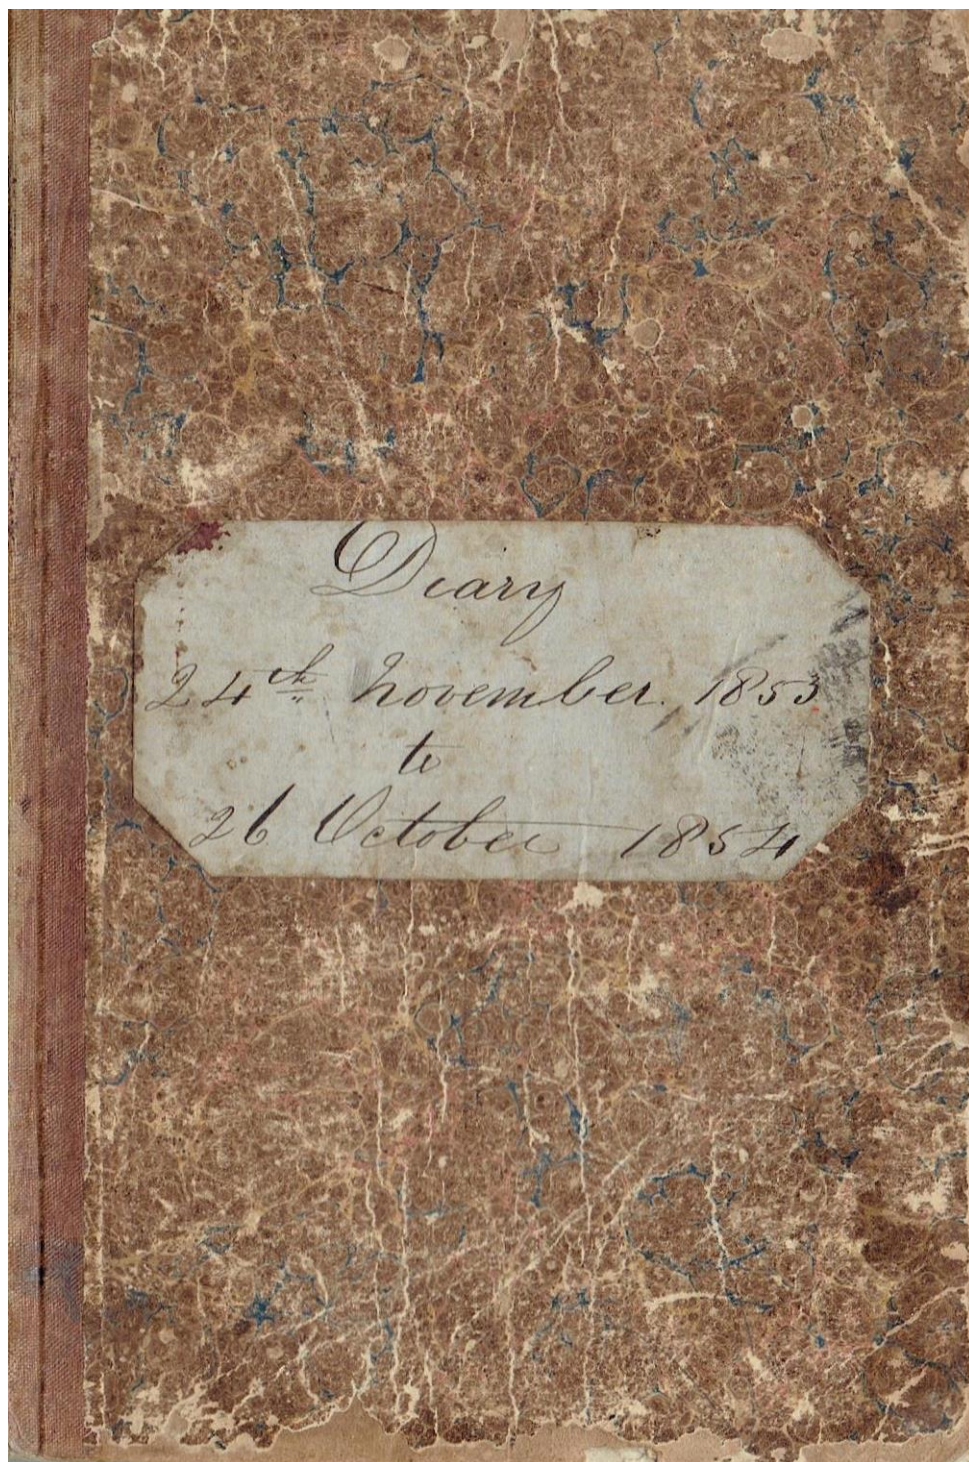 Diary
24th November. 1853
to
26 October 1854